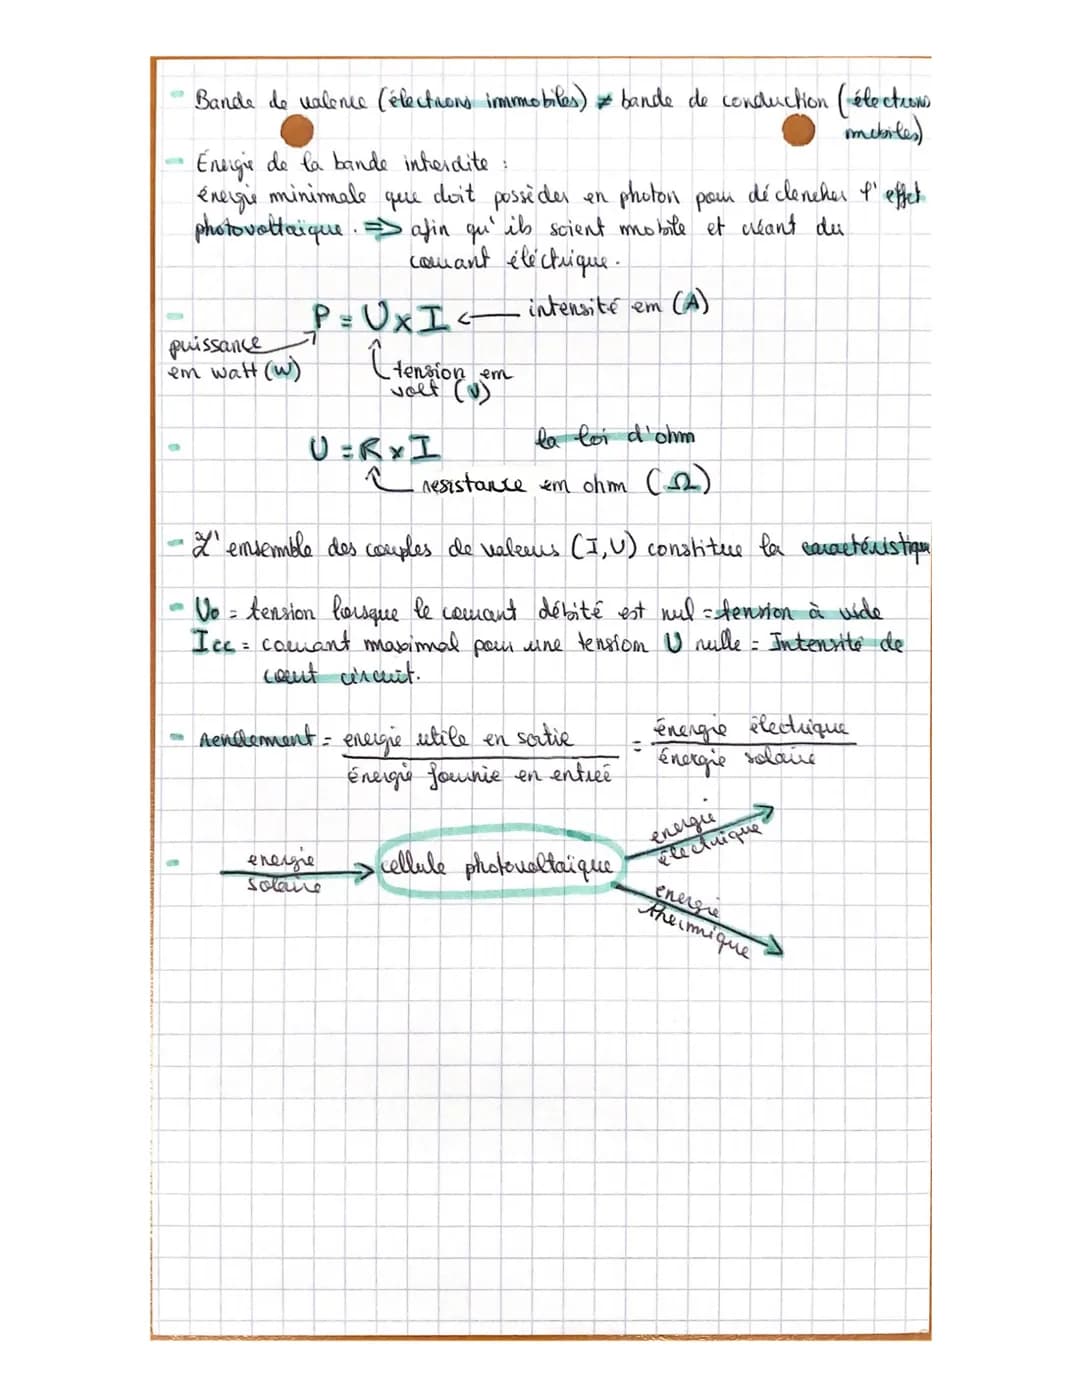 - Bande de valence (électrons immobiles) ≠ bande de conduction (électrons
mobiles)
- Énergie de la bande interdite :
énergie minimale que doit possèder en photon pour déclencher l'effet
photovoltaïque. => afin qu'ils soient mobile et créant du
courant éléctrique.
- P = U x I ← intensité em (A)
puissance
em watt (W)
tension em
volt (V)
- U = R x I la loi d'ohm
resistance em ohm (Ω)
- L'ensemble des couples de valeurs (I, U) constitue la caractéristique
- Uo = tension lorsque le courant débité est nul = tension à vide
Icc = courant maximal pour une tension U nulle = Intensité de
court circuit.
- rendement = energie utile en sortie = énergie électrique
énergie fournie en entreé énergie solaire
energie
électrique
- energie → cellule photovoltaïque
solaire
energie
thermique